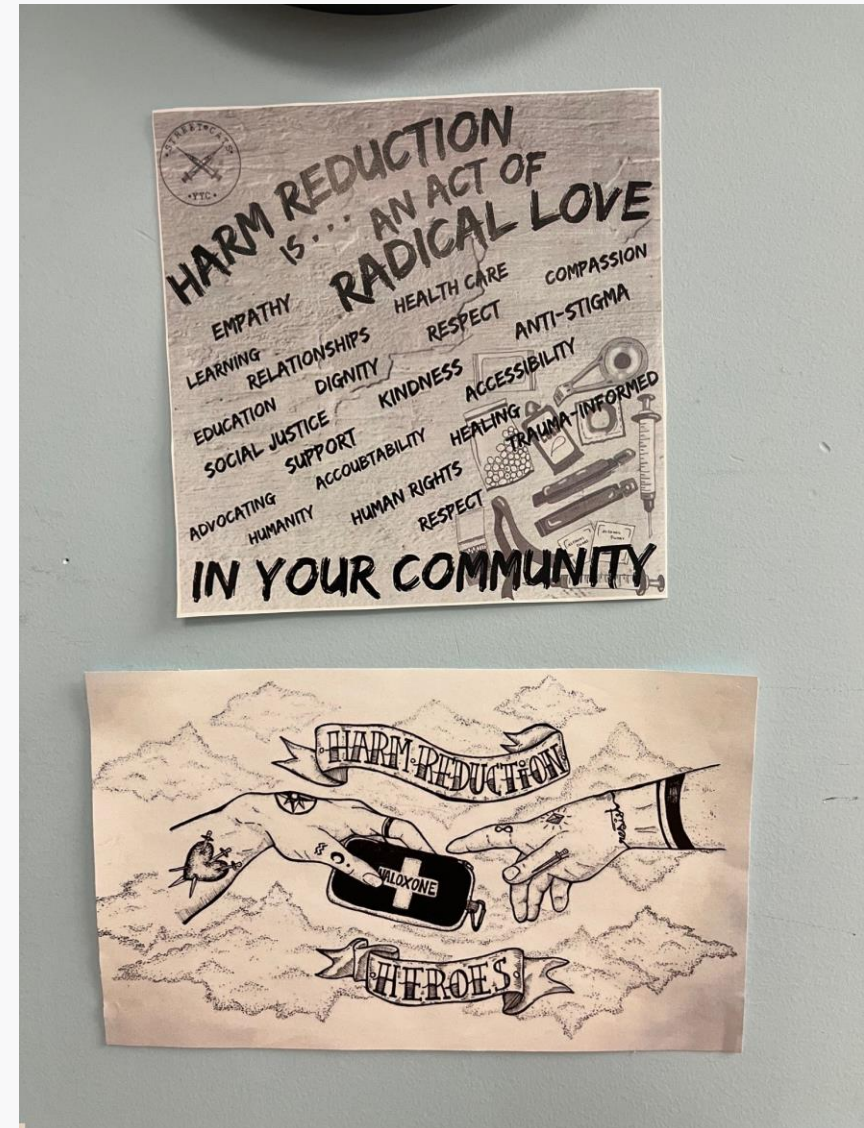 STREET CATS
YYC
HARM REDUCTION
IS... AN ACT OF
RADICAL LOVE
EMPATHY
HEALTH CARE
COMPASSION
LEARNING
RELATIONSHIPS
RESPECT
ANTI-STIGMA
EDUCATION
DIGNITY
KINDNESS
ACCESSIBILITY
SOCIAL JUSTICE
SUPPORT
ACCOUBTABILITY
HEALING
TRAUMA-INFORMED
ADVOCATING
HUMANITY
HUMAN RIGHTS
RESPECT
IN YOUR COMMUNITY
HARM REDUCTION
NALOXONE
resist
HEROES